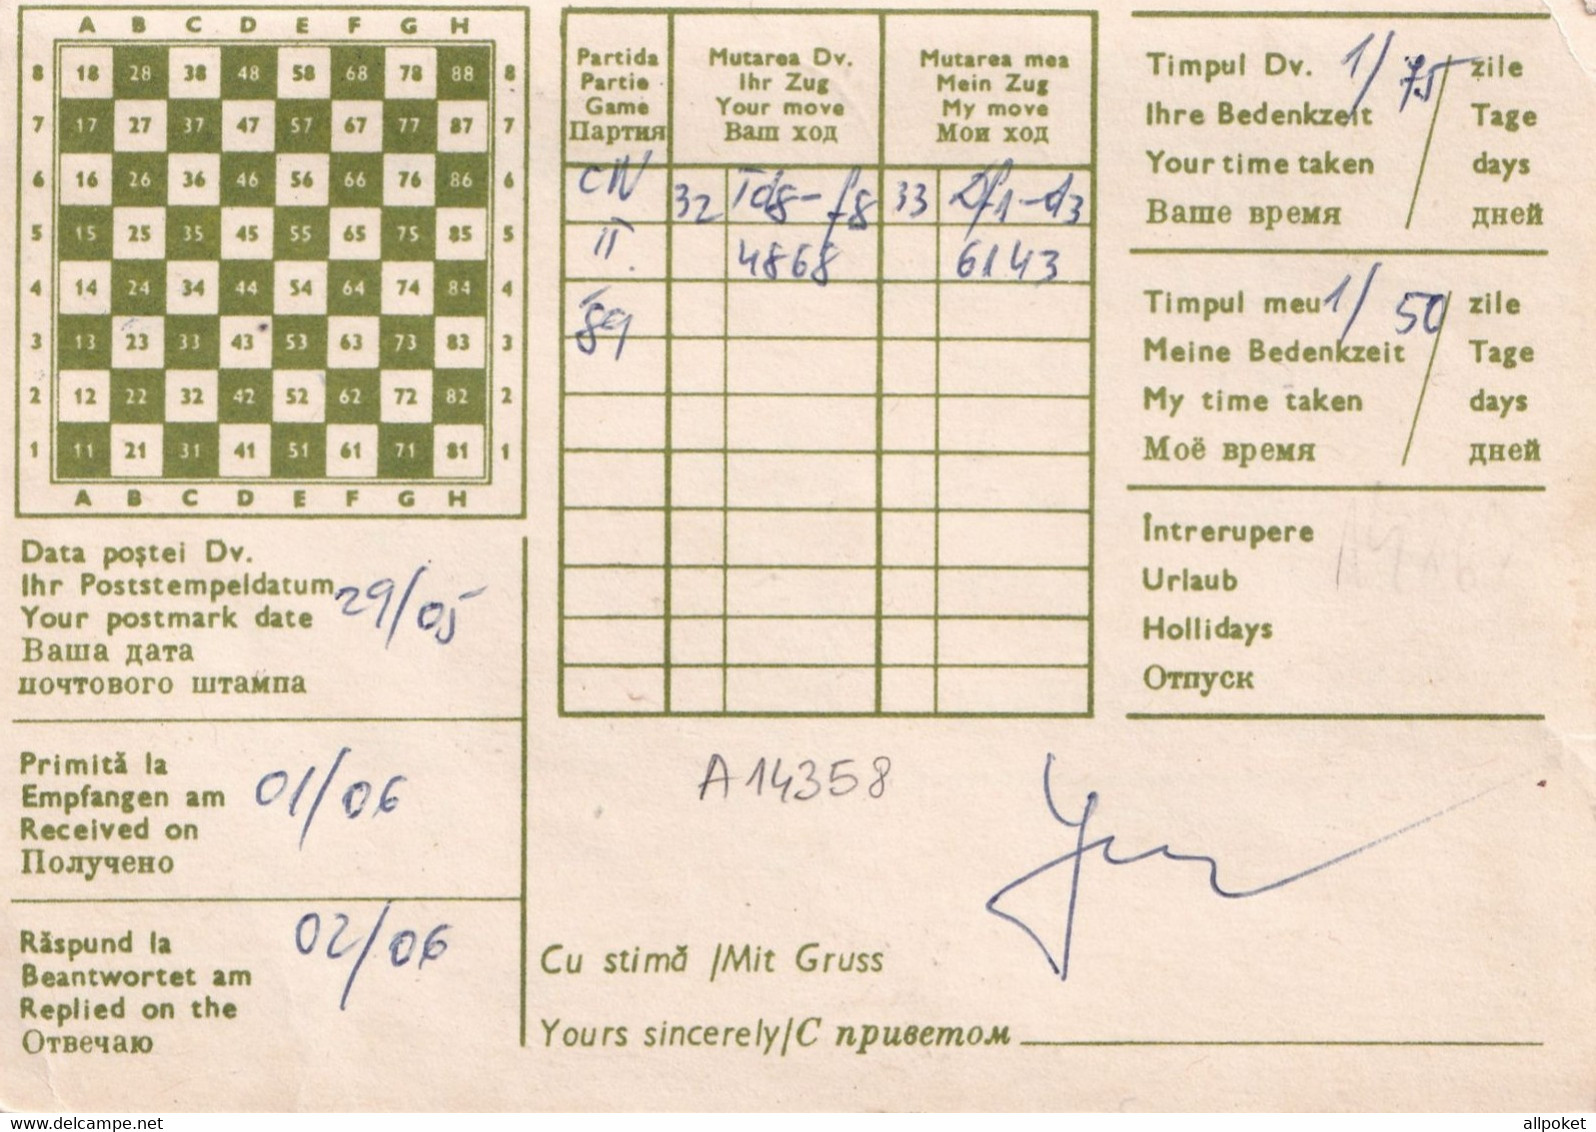 A B C D E F G H
8 18 28 38 48 58 68 78 88 8
7 17 27 37 47 57 67 77 87 7
6 16 26 36 46 56 66 76 86 6
5 15 25 35 45 55 65 75 85 5
4 14 24 34 44 54 64 74 84 4
3 13 23 33 43 53 63 73 83 3
2 12 22 32 42 52 62 72 82 2
1 11 21 31 41 51 61 71 81 1
A B C D E F G H
Data poștei Dv.
Ihr Poststempeldatum
Your postmark date
Ваша дата
почтового штампа
29/05
Primită la
Empfangen am
Received on
Получено
01/06
Răspund la
Beantwortet am
Replied on the
Отвечаю
02/06
Partida
Partie
Game
Партия
Mutarea Dv.
Ihr Zug
Your move
Ваш ход
Mutarea mea
Mein Zug
My move
Мои ход
CN 32 Td8-f8 33 Df1-d3
II. 4868 6143
89
Timpul Dv. 1/75 zile
Ihre Bedenkzeit Tage
Your time taken days
Ваше время дней
Timpul meu 1/50 zile
Meine Bedenkzeit Tage
My time taken days
Моё время дней
Întrerupere
Urlaub
Hollidays
Отпуск
A14358
Cu stimă /Mit Gruss
Yours sincerely/С приветом
www.delcampe.net
allpoket